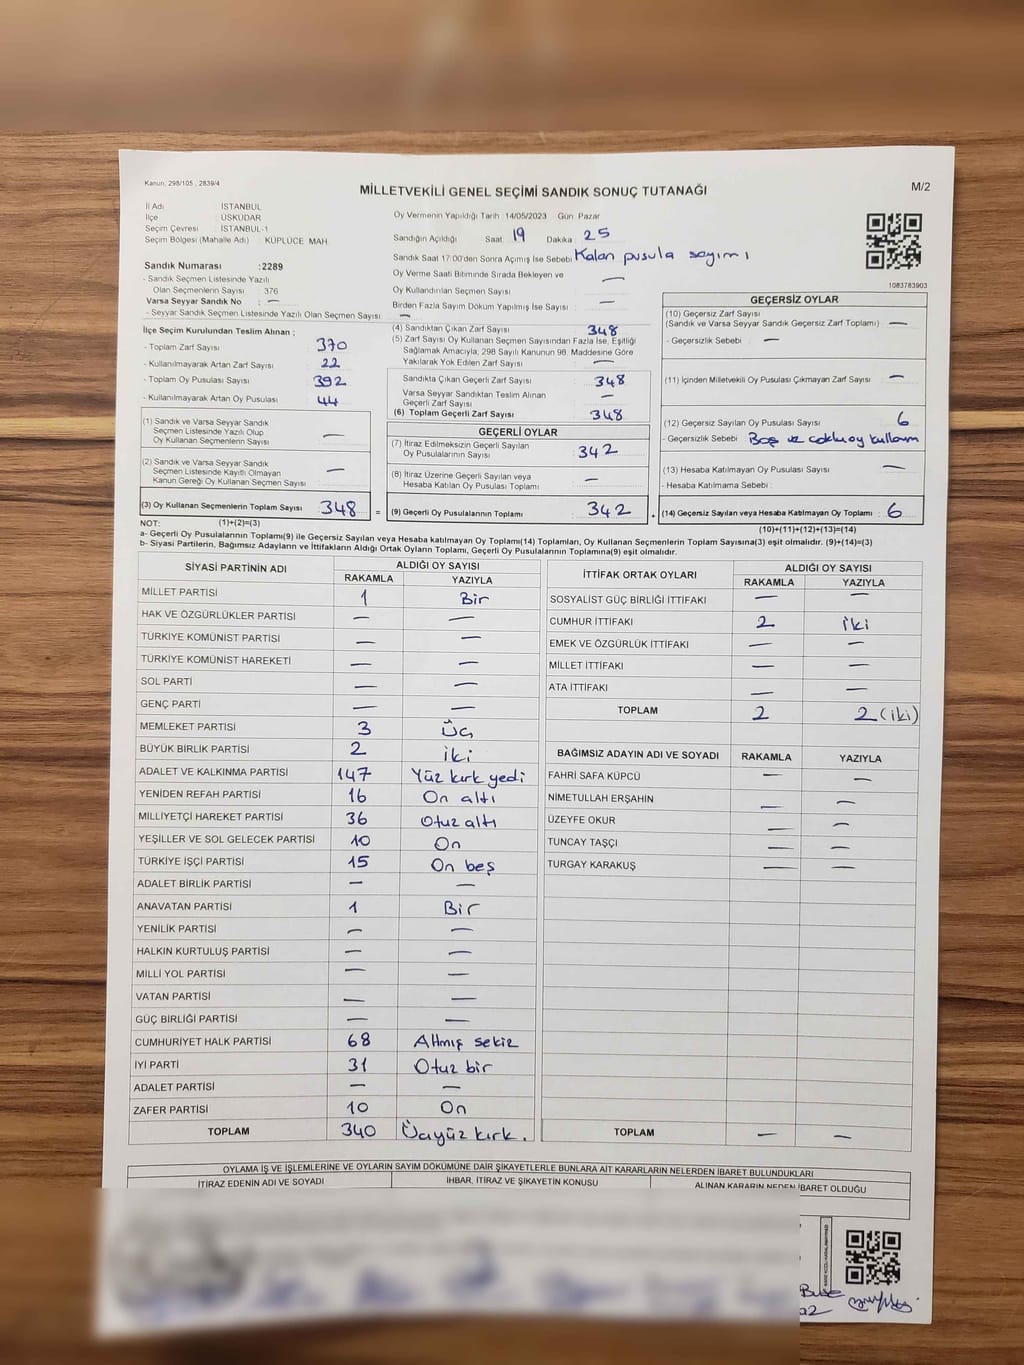 Kanun; 298/105 , 2839/4
MİLLETVEKİLİ GENEL SEÇİMİ SANDIK SONUÇ TUTANAĞI
M/2
İl Adı : İSTANBUL
İlçe : ÜSKÜDAR
Seçim Çevresi : İSTANBUL-1
Seçim Bölgesi (Mahalle Adı) : KÜPLÜCE MAH.
Oy Vermenin Yapıldığı Tarih : 14/05/2023 Gün : Pazar
Sandığın Açıldığı Saat : 19 Dakika : 25
Sandık Saat 17:00'den Sonra Açılmış İse Sebebi Kalan pusula sayımı
Oy Verme Saati Bitiminde Sırada Bekleyen ve
Oy Kullandırılan Seçmen Sayısı : —
Birden Fazla Sayım Döküm Yapılmış İse Sayısı : —
1083783903
Sandık Numarası :2289
- Sandık Seçmen Listesinde Yazılı
Olan Seçmenlerin Sayısı : 376
Varsa Seyyar Sandık No : —
- Seyyar Sandık Seçmen Listesinde Yazılı Olan Seçmen Sayısı : —
İlçe Seçim Kurulundan Teslim Alınan ;
- Toplam Zarf Sayısı : 370
- Kullanılmayarak Artan Zarf Sayısı : 22
- Toplam Oy Pusulası Sayısı : 392
- Kullanılmayarak Artan Oy Pusulası : 44
(1) Sandık ve Varsa Seyyar Sandık
Seçmen Listesinde Yazılı Olup
Oy Kullanan Seçmenlerin Sayısı : —
(2) Sandık ve Varsa Seyyar Sandık
Seçmen Listesinde Kayıtlı Olmayan
Kanun Gereği Oy Kullanan Seçmen Sayısı : —
(3) Oy Kullanan Seçmenlerin Toplam Sayısı : 348 =
(1)+(2)=(3)
(4) Sandıktan Çıkan Zarf Sayısı : 348
(5) Zarf Sayısı Oy Kullanan Seçmen Sayısından Fazla İse, Eşitliği
Sağlamak Amacıyla; 298 Sayılı Kanunun 98. Maddesine Göre
Yakılarak Yok Edilen Zarf Sayısı : —
Sandıkta Çıkan Geçerli Zarf Sayısı : 348
Varsa Seyyar Sandıktan Teslim Alınan
Geçerli Zarf Sayısı : —
(6) Toplam Geçerli Zarf Sayısı : 348
GEÇERLİ OYLAR
(7) İtiraz Edilmeksizin Geçerli Sayılan
Oy Pusulalarının Sayısı : 342
(8) İtiraz Üzerine Geçerli Sayılan veya
Hesaba Katılan Oy Pusulası Toplamı : —
(9) Geçerli Oy Pusulalarının Toplamı : 342 +
GEÇERSİZ OYLAR
(10) Geçersiz Zarf Sayısı
(Sandık ve Varsa Seyyar Sandık Geçersiz Zarf Toplamı) : —
- Geçersizlik Sebebi : —
(11) İçinden Milletvekili Oy Pusulası Çıkmayan Zarf Sayısı : —
(12) Geçersiz Sayılan Oy Pusulası Sayısı : 6
- Geçersizlik Sebebi : Boş ve çoklu oy kullanım
(13) Hesaba Katılmayan Oy Pusulası Sayısı : —
- Hesaba Katılmama Sebebi :
(14) Geçersiz Sayılan veya Hesaba Katılmayan Oy Toplamı : 6
(10)+(11)+(12)+(13)=(14)
NOT:
a- Geçerli Oy Pusulalarının Toplamı(9) ile Geçersiz Sayılan veya Hesaba katılmayan Oy Toplamı(14) Toplamları, Oy Kullanan Seçmenlerin Toplam Sayısına(3) eşit olmalıdır. (9)+(14)=(3)
b- Siyasi Partilerin, Bağımsız Adayların ve İttifakların Aldığı Ortak Oyların Toplamı, Geçerli Oy Pusulalarının Toplamına(9) eşit olmalıdır.
SİYASİ PARTİNİN ADI ALDIĞI OY SAYISI
RAKAMLA YAZIYLA
MİLLET PARTİSİ 1 Bir
HAK VE ÖZGÜRLÜKLER PARTİSİ — —
TÜRKİYE KOMÜNİST PARTİSİ — —
TÜRKİYE KOMÜNİST HAREKETİ — —
SOL PARTİ — —
GENÇ PARTİ — —
MEMLEKET PARTİSİ 3 Üç
BÜYÜK BİRLİK PARTİSİ 2 İki
ADALET VE KALKINMA PARTİSİ 147 Yüz kırk yedi
YENİDEN REFAH PARTİSİ 16 On altı
MİLLİYETÇİ HAREKET PARTİSİ 36 Otuz altı
YEŞİLLER VE SOL GELECEK PARTİSİ 10 On
TÜRKİYE İŞÇİ PARTİSİ 15 On beş
ADALET BİRLİK PARTİSİ — —
ANAVATAN PARTİSİ 1 Bir
YENİLİK PARTİSİ — —
HALKIN KURTULUŞ PARTİSİ — —
MİLLİ YOL PARTİSİ — —
VATAN PARTİSİ — —
GÜÇ BİRLİĞİ PARTİSİ — —
CUMHURİYET HALK PARTİSİ 68 Altmış sekiz
İYİ PARTİ 31 Otuz bir
ADALET PARTİSİ — —
ZAFER PARTİSİ 10 On
TOPLAM 340 Üçyüz kırk.
İTTİFAK ORTAK OYLARI ALDIĞI OY SAYISI
RAKAMLA YAZIYLA
SOSYALİST GÜÇ BİRLİĞİ İTTİFAKI — —
CUMHUR İTTİFAKI 2 İki
EMEK VE ÖZGÜRLÜK İTTİFAKI — —
MİLLET İTTİFAKI — —
ATA İTTİFAKI — —
TOPLAM 2 2 (iki)
BAĞIMSIZ ADAYIN ADI VE SOYADI RAKAMLA YAZIYLA
FAHRİ SAFA KÜPCÜ — —
NİMETULLAH ERŞAHİN — —
ÜZEYFE OKUR — —
TUNCAY TAŞÇI — —
TURGAY KARAKUŞ — —
TOPLAM — —
OYLAMA İŞ VE İŞLEMLERİNE VE OYLARIN SAYIM DÖKÜMÜNE DAİR ŞİKAYETLERLE BUNLARA AİT KARARLARIN NELERDEN İBARET BULUNDUKLARI
İTİRAZ EDENİN ADI VE SOYADI İHBAR, İTİRAZ VE ŞİKAYETİN KONUSU ALINAN KARARIN NEDEN İBARET OLDUĞU